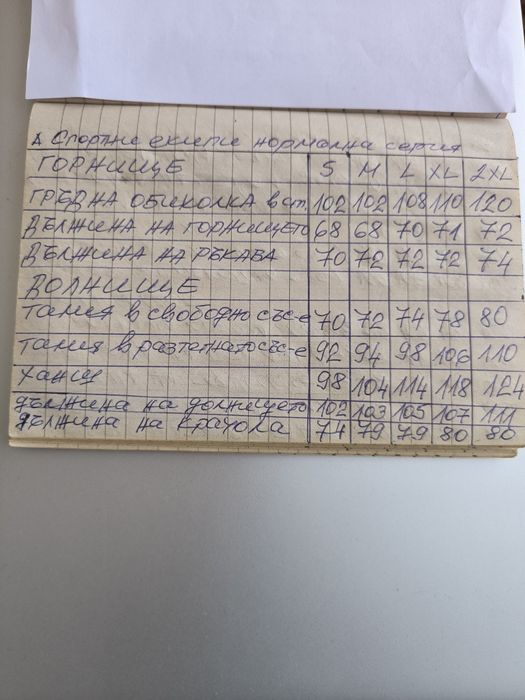 Спортни екипи нормална серия
ГОРНИЩЕ S M L XL 2XL
ГРЪДНА ОБИКОЛКА в ст. 102 102 108 110 120
ДЪЛЖИНА НА ГОРНИЩЕТО 68 68 70 71 72
ДЪЛЖИНА НА РЪКАВА 70 72 72 72 74
ДОЛНИЩЕ
талия в свободно със-е 70 72 74 78 80
талия в разтегнато със-е 92 94 98 106 110
ханш 98 104 114 118 124
дължина на долнището 102 103 105 107 111
дължина на крачола 74 79 79 80 80